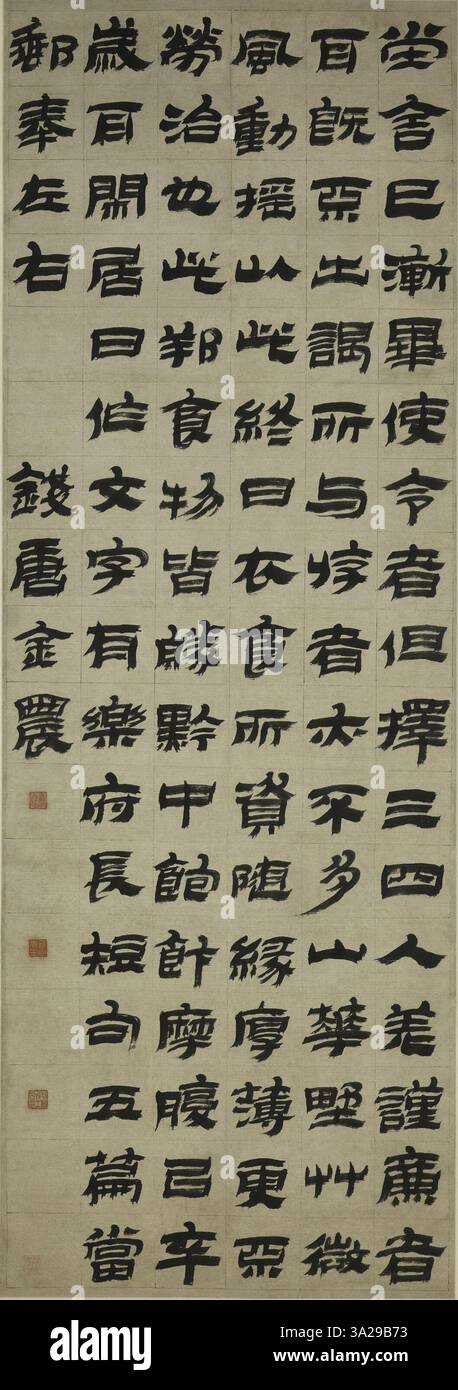 坣舍已漸畢使令者但擇三四人差謹廉者
耳既不出謁所与斿者亦不多山華野艸微
風動搖以此終日衣食所資随緣厚薄更不
勞治也此邦食物皆勝黔中飽飰摩腹已卒
歲耳閑居日作文字有樂府長短句五篇當
郵奉左右
錢唐金農
alamy
Image ID: 3A29B73
www.alamy.com